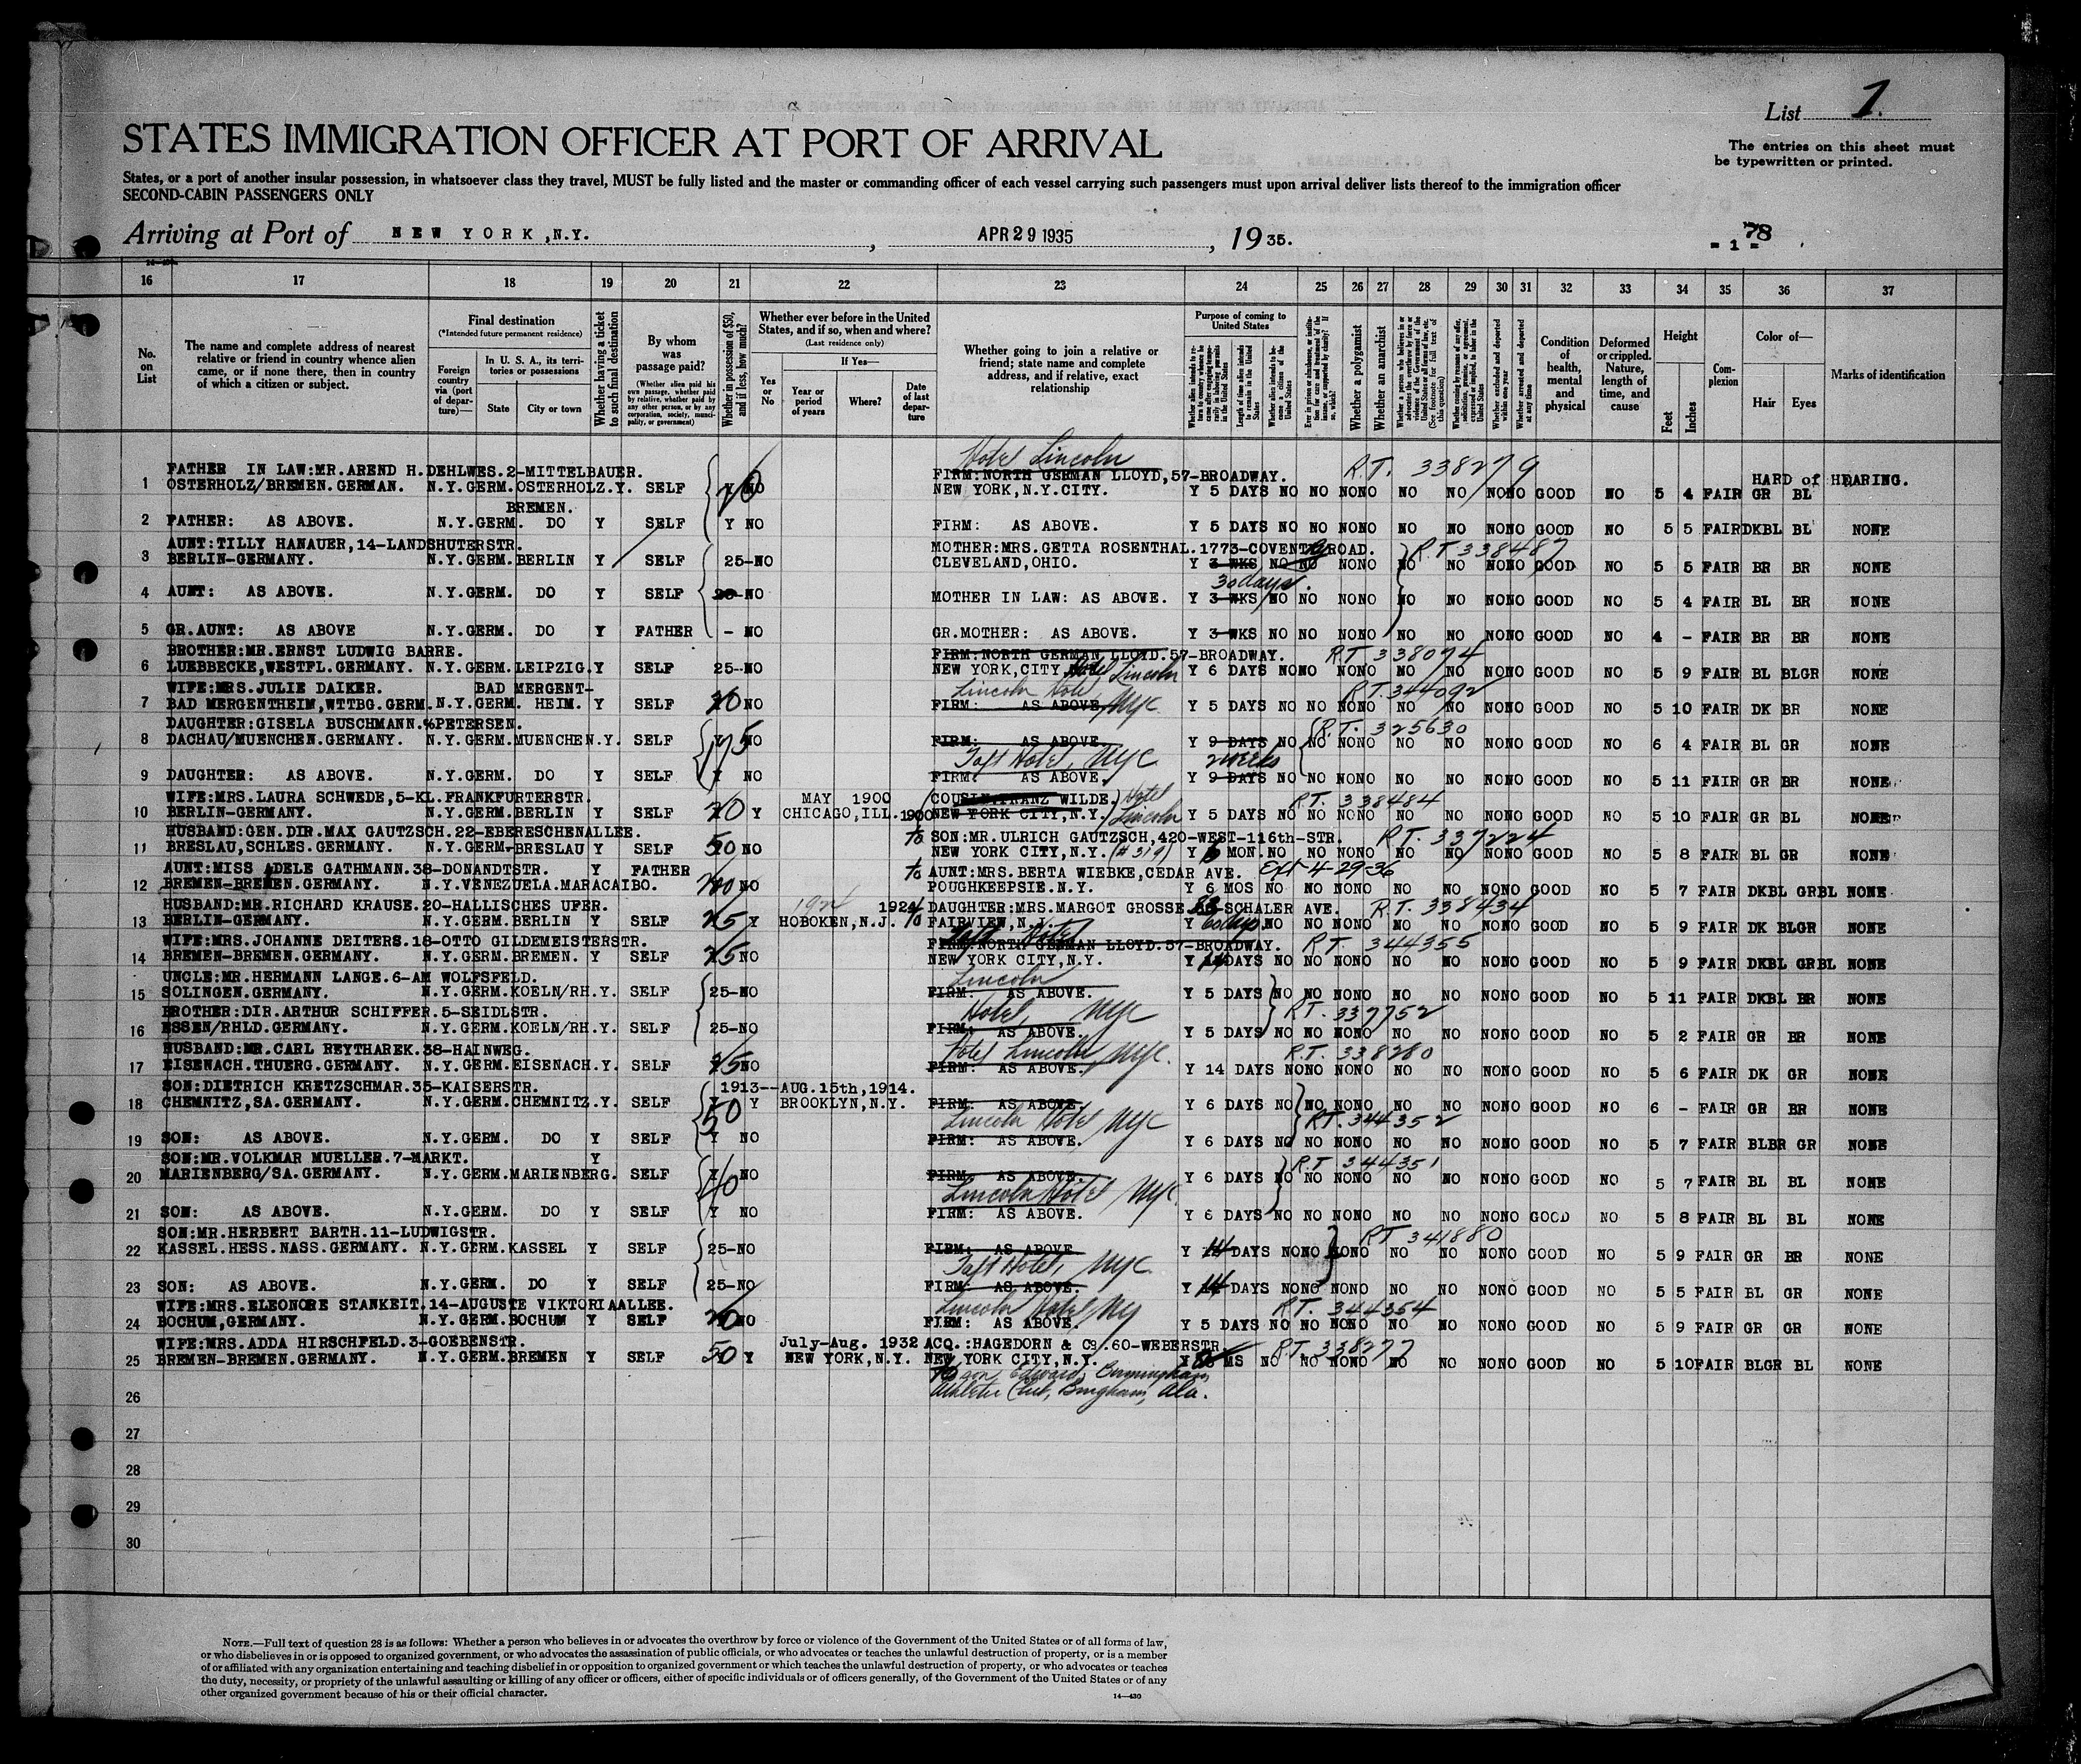 List 1.
STATES IMMIGRATION OFFICER AT PORT OF ARRIVAL
The entries on this sheet must
be typewritten or printed.
States, or a port of another insular possession, in whatsoever class they travel, MUST be fully listed and the master or commanding officer of each vessel carrying such passengers must upon arrival deliver lists thereof to the immigration officer
SECOND-CABIN PASSENGERS ONLY
Arriving at Port of NEW YORK, N.Y. , APR 29 1935 , 1935.
78
- 1 -
16 17 18 19 20 21 22 23 24 25 26 27 28 29 30 31 32 33 34 35 36 37
No. on List
The name and complete address of nearest relative or friend in country whence alien came, or if none there, then in country of which a citizen or subject.
Final destination
(*Intended future permanent residence)
Foreign country via (port of departure)—
In U. S. A., its territories or possessions
State
City or town
Whether having a ticket to such final destination
By whom was passage paid?
(Whether alien paid his own passage, whether paid by relative, whether paid by any other person, or by any corporation, society, municipality, or government)
Whether in possession of $50, and if less, how much?
Whether ever before in the United States, and if so, when and where?
(Last residence only)
If Yes—
Yes or No
Year or period of years
Where?
Date of last departure
Whether going to join a relative or friend; state name and complete address, and if relative, exact relationship
Purpose of coming to United States
Length of time alien intends to remain in the United States
Whether alien intends to become a citizen of the United States
Whether a polygamist
Whether an anarchist
Whether excluded and deported within one year
Whether arrested and deported at any time
Condition of health, mental and physical
Deformed or crippled. Nature, length of time, and cause
Height
Feet
Inches
Complexion
Color of—
Hair
Eyes
Marks of identification
Hotel Lincoln
FATHER IN LAW:MR.AREND H.DEHLWES.2-MITTELBAUER. FIRM:NORTH GERMAN LLOYD,57-BROADWAY. R.T. 338279 HARD of HEARING.
1 OSTERHOLZ/BREMEN.GERMAN. N.Y.GERM.OSTERHOLZ.Y. SELF NO NEW YORK,N.Y.CITY. Y 5 DAYS NO NO NONO NO NO NONO GOOD NO 5 4 FAIR GR BL
BREMEN.
2 FATHER: AS ABOVE. N.Y.GERM. DO Y SELF Y NO FIRM: AS ABOVE. Y 5 DAYS NO NO NONO NO NO NONO GOOD NO 5 5 FAIR DKBL BL NONE
AUNT:TILLY HANAUER,14-LANDSHUTERSTR. MOTHER:MRS.GETTA ROSENTHAL.1773-COVENTRY ROAD. R.T 338487
3 BERLIN-GERMANY. N.Y.GERM.BERLIN Y SELF 25-NO CLEVELAND,OHIO. Y 3 WKS NO NO NONO NO NO NONO GOOD NO 5 5 FAIR BR BR NONE
30 days.
4 AUNT: AS ABOVE. N.Y.GERM. DO Y SELF NO MOTHER IN LAW: AS ABOVE. Y 3 WKS NO NO NONO NO NO NONO GOOD NO 5 4 FAIR BL BR NONE
5 GR.AUNT: AS ABOVE N.Y.GERM. DO Y FATHER - NO GR.MOTHER: AS ABOVE. Y 3 WKS NO NO NONO NO NO NONO GOOD NO 4 - FAIR BR BR NONE
BROTHER:MR.ERNST LUDWIG BARRE. FIRM:NORTH GERMAN LLOYD.57-BROADWAY. R.T 338074
6 LUEBBECKE,WESTFL.GERMANY. N.Y.GERM.LEIPZIG.Y SELF 25-NO NEW YORK,CITY. Hotel Lincoln Y 6 DAYS NO NONO NONO NO NO NONO GOOD NO 5 9 FAIR BL BLGR NONE
WIFE:MRS.JULIE DAIKER. BAD MERGENT- Lincoln Hotel R.T. 344092
7 BAD MERGENTHEIM,WTTBG.GERM. N.Y.GERM. HEIM. Y SELF 20 NO FIRM: AS ABOVE, NYC. Y 5 DAYS NO NO NONO NO NO NONO GOOD NO 5 10 FAIR DK BR NONE
DAUGHTER:GISELA BUSCHMANN.%PETERSEN. R.T. 325630
8 DACHAU/MUENCHEN.GERMANY. N.Y.GERM.MUENCHEN.Y. SELF 175 NO FIRM: AS ABOVE. Y 9 DAYS NO NO NONO NO NO NONO GOOD NO 6 4 FAIR BL GR NONE
Taft Hotel, NYC 2 weeks
9 DAUGHTER: AS ABOVE. N.Y.GERM. DO Y SELF Y NO FIRM: AS ABOVE, Y 9 DAYS NO NO NONO NO NO NONO GOOD NO 5 11 FAIR GR BR NONE
WIFE:MRS.LAURA SCHWEDE,5-KL.FRANKFURTERSTR. MAY 1900 COUSIN:FRANZ WILDE. Hotel R.T. 338484
10 BERLIN-GERMANY. N.Y.GERM.BERLIN Y SELF 20 Y CHICAGO,ILL. 1900 NEW YORK CITY,N.Y. Lincoln Y 5 DAYS NO NO NONO NO NO NONO GOOD NO 5 10 FAIR GR BL NONE
HUSBAND:GEN.DIR.MAX GAUTZSCH.22-EBERESCHENALLEE. SON:MR.ULRICH GAUTZSCH,420-WEST-116th-STR. R.T. 337224
11 BRESLAU,SCHLES.GERMANY. N.Y.GERM-BRESLAU Y SELF 50 NO NEW YORK CITY,N.Y. (#319) Y MON.NO NO NONO NO NO NONO GOOD NO 5 8 FAIR BL GR NONE
AUNT:MISS ADELE GATHMANN.38-DONANDTSTR. Y FATHER AUNT:MRS.BERTA WIEBKE,CEDAR AVE. Ext 4-29-36
12 BREMEN-BREMEN.GERMANY. N.Y.VENEZUELA.MARACAIBO. NO POUGHKEEPSIE.N.Y. Y 6 MOS NO NO NONO NO NO NONO GOOD NO 5 7 FAIR DKBL GRBL NONE
HUSBAND:MR.RICHARD KRAUSE.20-HALLISCHES UFER. 1924 1924 DAUGHTER:MRS.MARGOT GROSSE SCHALER AVE. R.T. 338434
13 BERLIN-GERMANY. N.Y.GERM.BERLIN Y SELF 25 Y HOBOKEN,N.J. FAIRVIEW,N.J. Y 60 days NO NO NONO NO NO NONO GOOD NO 5 9 FAIR DK BLGR NONE
Hotel
WIFE:MRS.JOHANNE DEITERS.18-OTTO GILDEMEISTERSTR. FIRM:NORTH GERMAN LLOYD.57-BROADWAY. R.T. 344355
14 BREMEN-BREMEN.GERMANY. N.Y.GERM.BREMEN. Y SELF 25 NO NEW YORK CITY,N.Y. Y 14 DAYS NO NO NONO NO NO NONO GOOD NO 5 9 FAIR DKBL GRBL NONE
UNCLE:MR.HERMANN LANGE.6-AM WOLFSFELD. Lincoln
15 SOLINGEN.GERMANY. N.Y.GERM.KOELN/RH.Y. SELF 25-NO FIRM: AS ABOVE. Y 5 DAYS NO NO NONO NO NO NONO GOOD NO 5 11 FAIR DKBL BR NONE
BROTHER:DIR.ARTHUR SCHIFFER.5-SEIDLSTR. Hotel, NYC R.T. 337752
16 ESSEN/RHLD.GERMANY. N.Y.GERM.KOELN/RH.Y. SELF 25-NO FIRM: AS ABOVE. Y 5 DAYS NO NO NONO NO NO NONO GOOD NO 5 2 FAIR GR BR NONE
HUSBAND:MR.CARL REYTHAREK.38-HAINWEG. Hotel Lincoln NYC. R.T. 338280
17 EISENACH.THUERG.GERMANY. N.Y.GERM.EISENACH.Y. SELF 25 NO FIRM: AS ABOVE. Y 14 DAYS NO NO NONO NO NO NONO GOOD NO 5 6 FAIR DK GR NONE
SON:DIETRICH KRETZSCHMAR.35-KAISERSTR. 1913--AUG.15th,1914.
18 CHEMNITZ,SA.GERMANY. N.Y.GERM.CHEMNITZ.Y. SELF 50 Y BROOKLYN,N.Y. FIRM: AS ABOVE. Y 6 DAYS NO NO NONO NO NO NONO GOOD NO 6 - FAIR GR BR NONE
Lincoln Hotel NYC R.T. 344352
19 SON: AS ABOVE. N.Y.GERM. DO Y SELF Y NO FIRM: AS ABOVE, Y 6 DAYS NO NO NONO NO NO NONO GOOD NO 5 7 FAIR BLBR GR NONE
SON:MR.VOLKMAR MUELLER.7-MARKT. Y R.T 344351
20 MARIENBERG/SA.GERMANY. N.Y.GERM.MARIENBERG. SELF 40 NO FIRM: AS ABOVE. Y 6 DAYS NO NO NONO NO NO NONO GOOD NO 5 7 FAIR BL BL NONE
Lincoln Hotel NYC
21 SON: AS ABOVE. N.Y.GERM. DO Y SELF Y NO FIRM: AS ABOVE. Y 6 DAYS NO NO NONO NO NO NONO GOOD NO 5 8 FAIR BL BL NONE
SON:MR.HERBERT BARTH.11-LUDWIGSTR. RT 341880
22 KASSEL.HESS.NASS.GERMANY. N.Y.GERM.KASSEL Y SELF 25-NO FIRM: AS ABOVE Y 14 DAYS NONO NONO NO NO NONO GOOD NO 5 9 FAIR GR BR NONE
Taft Hotel, NYC
23 SON: AS ABOVE. N.Y.GERM. DO Y SELF 25-NO FIRM: AS ABOVE. Y 14 DAYS NONO NONO NO NO NONO GOOD NO 5 5 FAIR BL GR NONE
WIFE:MRS.ELEONORE STANKEIT.14-AUGUSTE VIKTORIAALLEE. Lincoln Hotel NY R.T. 344354
24 BOCHUM,GERMANY. N.Y.GERM.BOCHUM Y SELF 20 NO FIRM: AS ABOVE. Y 5 DAYS NO NO NONO NO NO NONO GOOD NO 5 9 FAIR GR GR NONE
WIFE:MRS.ADDA HIRSCHFELD.3-GOEBENSTR. July-Aug. 1932 ACQ.:HAGEDORN & Co/.60-WEBERSTR. R.T. 338277
25 BREMEN-BREMEN.GERMANY. N.Y.GERM.BREMEN Y SELF 50 Y NEW YORK,N.Y. NEW YORK CITY,N.Y. Y MS NO NO NONO NO NO NONO GOOD NO 5 10 FAIR BLGR BL NONE
son, Edward, Birmingham
26 Athletic Club, Bingham, Ala.
27
28
29
30
NOTE.—Full text of question 28 is as follows: Whether a person who believes in or advocates the overthrow by force or violence of the Government of the United States or of all forms of law,
or who disbelieves in or is opposed to organized government, or who advocates the assassination of public officials, or who advocates or teaches the unlawful destruction of property, or is a member
of or affiliated with any organization entertaining and teaching disbelief in or opposition to organized government or which teaches the unlawful destruction of property, or who advocates or teaches
the duty, necessity, or propriety of the unlawful assaulting or killing of any officer or officers, either of specific individuals or of officers generally, of the Government of the United States or of any
other organized government because of his or their official character.
14—430